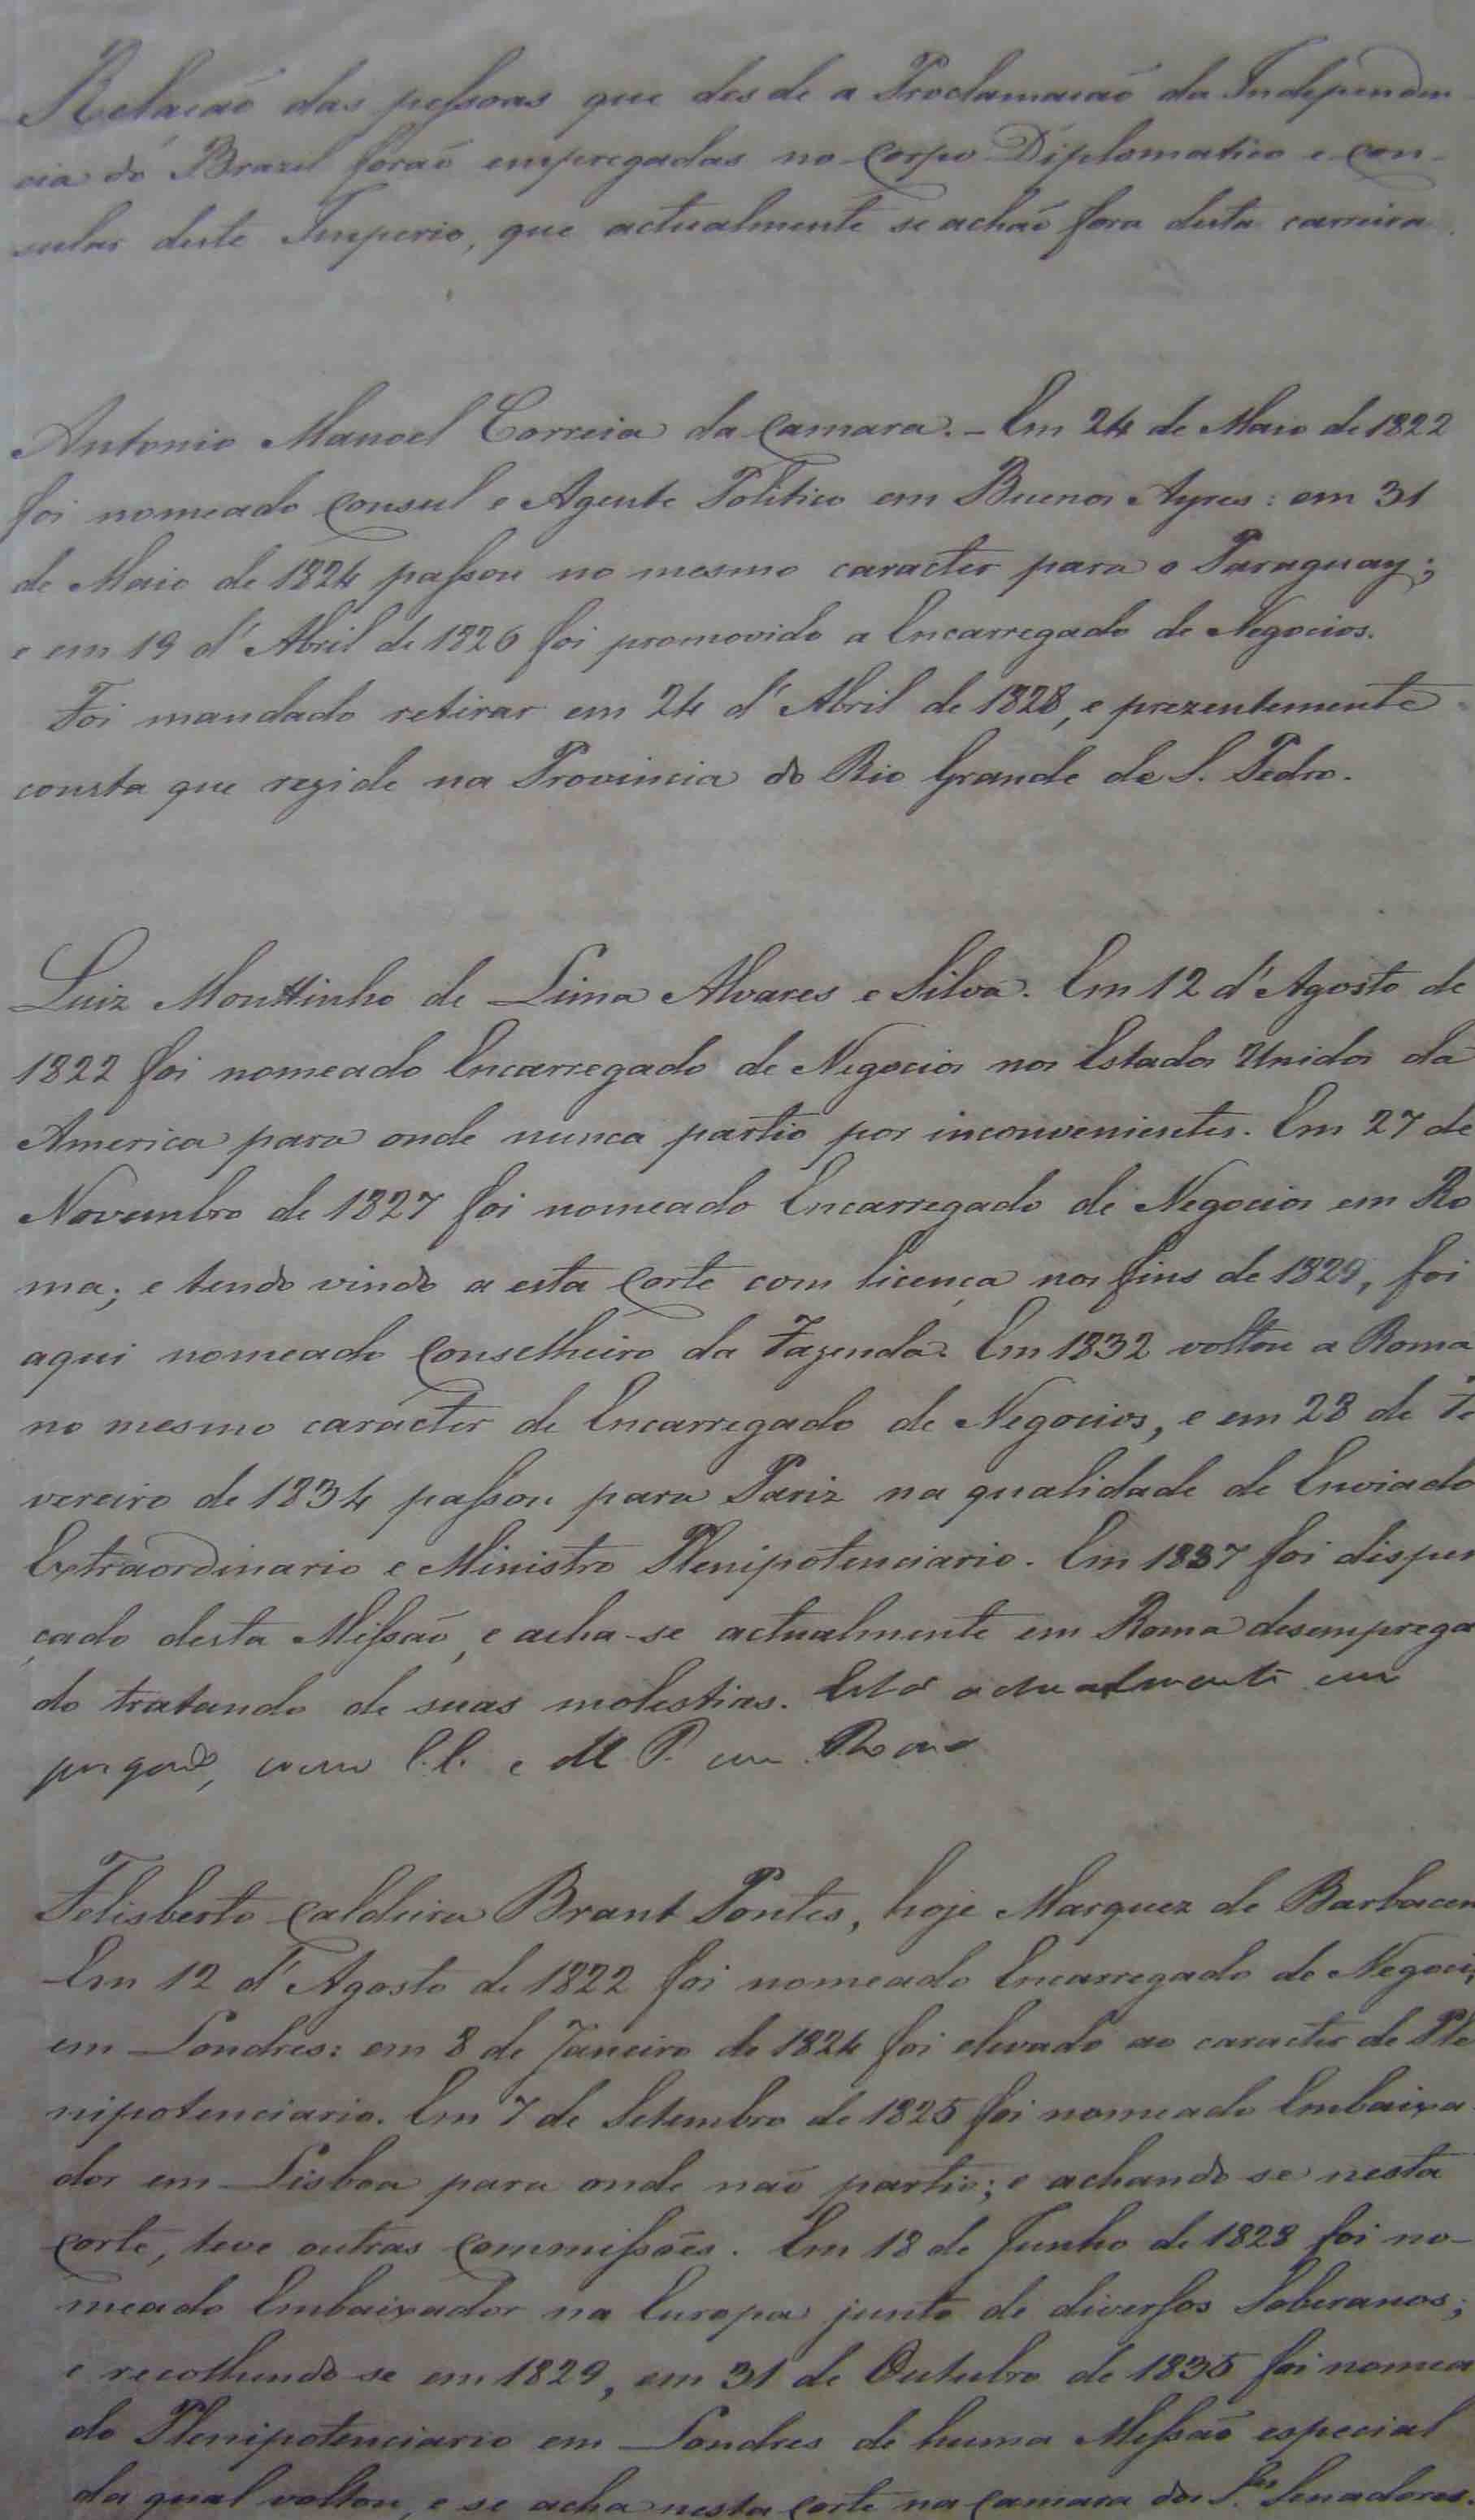 Relação das pessoas que desde a Proclamação da Independen-
cia do Brazil forão empregadas no Corpo Diplomatico e Con-
sular deste Imperio, que actualmente se achão fora desta carreira.
Antonio Manoel Correia da Camara. - Em 24 de Maio de 1822
foi nomeado Consul e Agente Politico em Buenos Ayres: em 31
de Maio de 1824 passou no mesmo caracter para o Paraguay;
e em 19 d'Abril de 1826 foi promovido a Encarregado de Negocios.
Foi mandado retirar em 24 d'Abril de 1828, e prezentemente
consta que rezide na Provincia do Rio Grande de S. Pedro.
Luiz Monttinho de Lima Alvares e Silva. Em 12 d'Agosto de
1822 foi nomeado Encarregado de Negocios nos Estados Unidos da
America para onde nunca partio por inconvenientes. Em 27 de
Novembro de 1827 foi nomeado Encarregado de Negocios em Ro
ma; e tendo vindo a esta Corte com licença nos fins de 1829, foi
aqui nomeado Conselheiro da Fazenda. Em 1832 voltou a Roma
no mesmo caracter de Encarregado de Negocios, e em 28 de Fe
vereiro de 1834 passou para Pariz na qualidade de Enviado
Extraordinario e Ministro Plenipotenciario. Em 1837 foi dispen
çado desta Missão, e acha-se actualmente em Roma desemprega
do tratando de suas molestias. Está actualmente em
pregado, como E.E. e M.P. em Roma
Felisberto Caldeira Brant Pontes, hoje Marquez de Barbacen
Em 12 d'Agosto de 1822 foi nomeado Encarregado de Negoci
em Londres: em 8 de Janeiro de 1824 foi elevado ao caracter de Ple
nipotenciario. Em 7 de Setembro de 1825 foi nomeado Embaixa
dor em Lisboa para onde não partio; e achando se nesta
Corte, teve outras Commissões. Em 18 de Junho de 1828 foi no-
meado Embaixador na Europa junto de diversos Soberanos;
e recolhendo-se em 1829, em 31 de Outubro de 1835 foi nomea
do Plenipotenciario em Londres de huma Missão especial
da qual voltou, e se acha nesta Corte na Camara dos S.res Senadores.